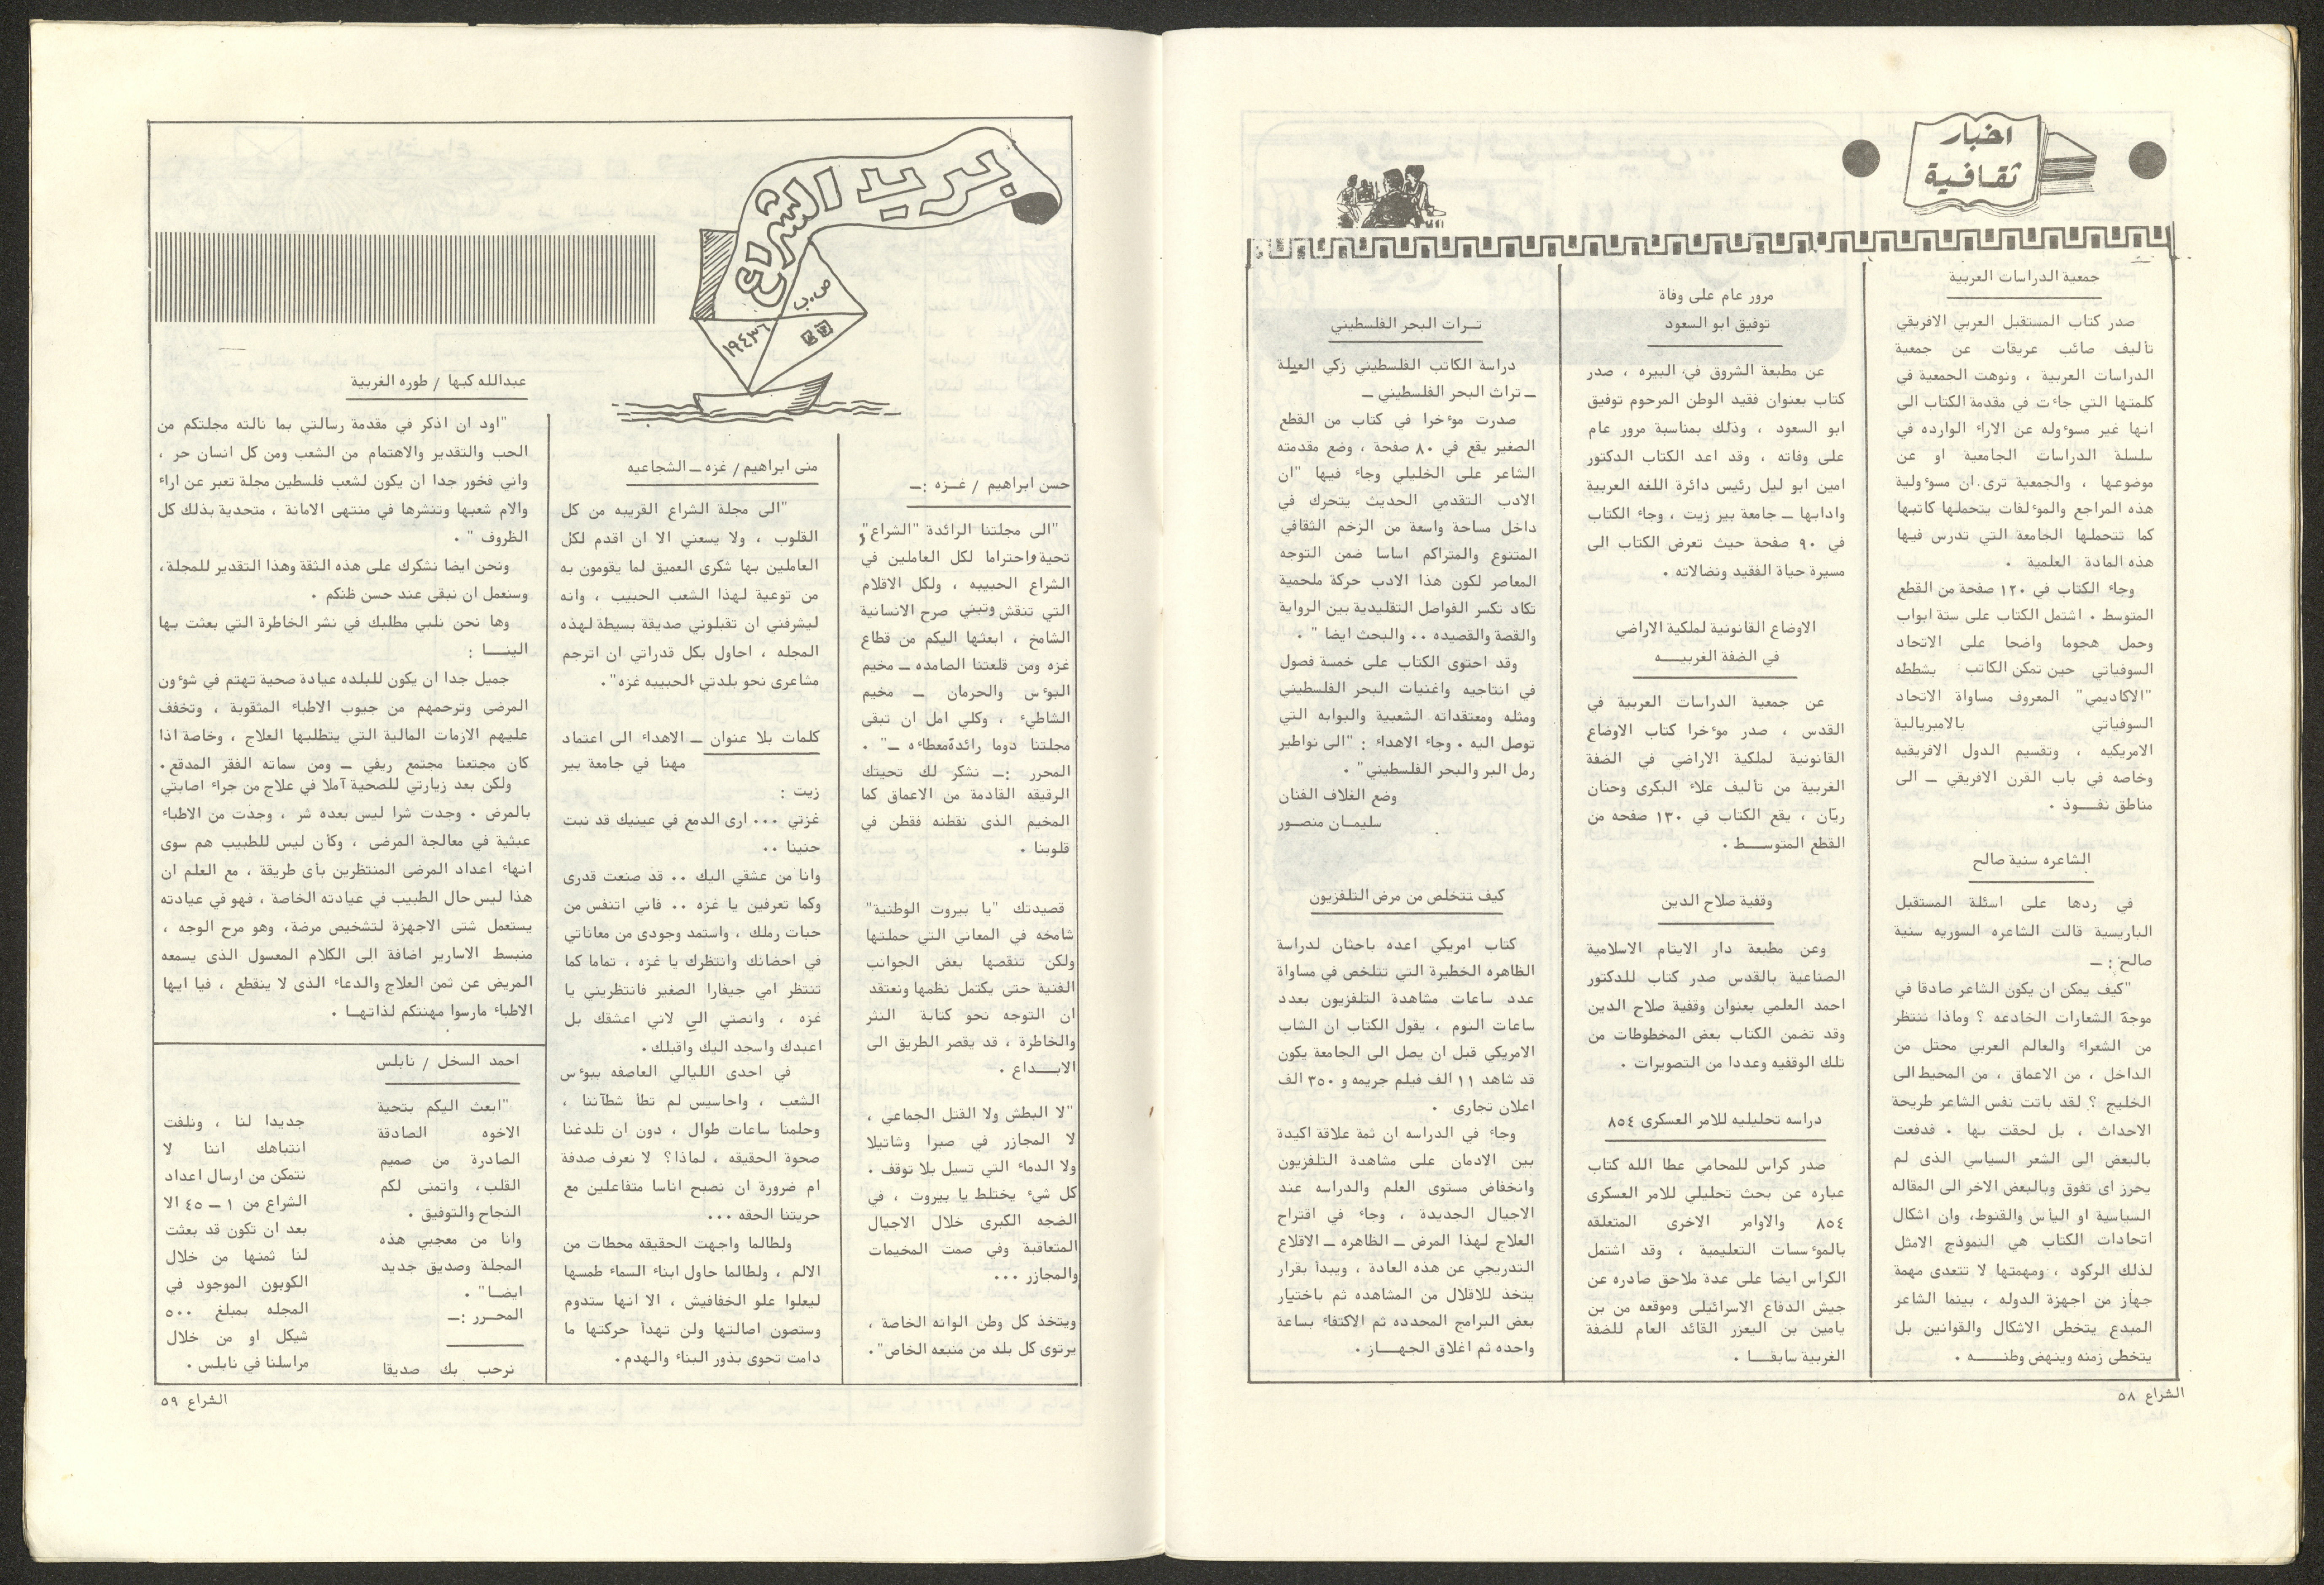 اخبار
ثقافية
جمعية الدراسات العربية
صدر كتاب المستقبل العربي الافريقي
تأليف صائب عريقات عن جمعية
الدراسات العربية ، ونوهت الجمعية في
كلمتها التي جاءت في مقدمة الكتاب الى
انها غير مسوءوله عن الاراء الوارده في
سلسلة الدراسات الجامعية او عن
موضوعها ، والجمعية ترى ان مسوءولية
هذه المراجع والموءلفات يتحملها كاتبها
كما تتحملها الجامعة التي تدرس فيها
هذه المادة العلمية .
وجاء الكتاب في ١٢٠ صفحة من القطع
المتوسط . اشتمل الكتاب على ستة ابواب
وحمل هجوما واضحا على الاتحاد
السوفياتي حين تمكن الكاتب بشططه
"الاكاديمي" المعروف مساواة الاتحاد
السوفياتي بالامبريالية
الامريكيه ، وتقسيم الدول الافريقيه
وخاصه في باب القرن الافريقي ــ الى
مناطق نفـــوذ .
الشاعره سنية صالح
في ردها على اسئلة المستقبل
الباريسية قالت الشاعره السوريه سنية
صالح : ــ
"كيف يمكن ان يكون الشاعر صادقا في
موجة الشعارات الخادعه ؟ وماذا ننتظر
من الشعراء والعالم العربي محتل من
الداخل ، من الاعماق ، من المحيط الى
الخليج ؟ لقد باتت نفس الشاعر طريحة
الاحداث ، بل لحقت بها . فدفعت
بالبعض الى الشعر السياسي الذى لم
يحرز اى تفوق وبالبعض الاخر الى المقاله
السياسية او اليأس والقنوط، وان اشكال
اتحادات الكتاب هي النموذج الامثل
لذلك الركود ، ومهمتها لا تتعدى مهمة
جهاز من اجهزة الدوله ، بينما الشاعر
المبدع يتخطى الاشكال والقوانين بل
يتخطى زمنه وينهض وطنـــه .
مرور عام على وفاة
توفيق ابو السعود
عن مطبعة الشروق في البيره ، صدر
كتاب بعنوان فقيد الوطن المرحوم توفيق
ابو السعود ، وذلك بمناسبة مرور عام
على وفاته ، وقد اعد الكتاب الدكتور
امين ابو ليل رئيس دائرة اللغه العربية
وادابها ــ جامعة بير زيت ، وجاء الكتاب
في ٩٠ صفحة حيث تعرض الكتاب الى
مسيرة حياة الفقيد ونضالاته .
الاوضاع القانونية لملكية الاراضي
في الضفة الغربيـــه
عن جمعية الدراسات العربية في
القدس ، صدر موءخرا كتاب الاوضاع
القانونية لملكية الاراضي في الضفة
الغربية من تأليف علاء البكرى وحنان
ريّان ، يقع الكتاب في ١٣٠ صفحه من
القطع المتوســـط .
وقفية صلاح الدين
وعن مطبعة دار الايتام الاسلامية
الصناعية بالقدس صدر كتاب للدكتور
احمد العلمي بعنوان وقفية صلاح الدين
وقد تضمن الكتاب بعض المخطوطات من
تلك الوقفيه وعددا من التصويرات .
دراسه تحليليه للامر العسكرى ٨٥٤
صدر كراس للمحامي عطا الله كتاب
عباره عن بحث تحليلي للامر العسكرى
٨٥٤ والاوامر الاخرى المتعلقه
بالموءسسات التعليمية ، وقد اشتمل
الكراس ايضا على عدة ملاحق صادره عن
جيش الدفاع الاسرائيلي وموقعه من بن
يامين بن اليعزر القائد العام للضفة
الغربية سابقــا .
تــراث البحر الفلسطيني
دراسة الكاتب الفلسطيني زكي العيلة
ــ تراث البحر الفلسطيني ــ
صدرت موءخرا في كتاب من القطع
الصغير يقع في ٨٠ صفحة ، وضع مقدمته
الشاعر على الخليلي وجاء فيها "ان
الادب التقدمي الحديث يتحرك في
داخل مساحة واسعة من الزخم الثقافي
المتنوع والمتراكم اساسا ضمن التوجه
المعاصر لكون هذا الادب حركة ملحمية
تكاد تكسر الفواصل التقليدية بين الرواية
والقصة والقصيده .. والبحث ايضا " .
وقد احتوى الكتاب على خمسة فصول
في انتاجيه واغنيات البحر الفلسطيني
ومثله ومعتقداته الشعبية والبوابه التي
توصل اليه . وجاء الاهداء : "الى نواطير
رمل البر والبحر الفلسطيني" .
وضع الغلاف الفنان
سليمــان منصــور
كيف تتخلص من مرض التلفزيون
كتاب امريكي اعده باحثان لدراسة
الظاهره الخطيرة التي تتلخص في مساواة
عدد ساعات مشاهدة التلفزيون بعدد
ساعات النوم ، يقول الكتاب ان الشاب
الامريكي قبل ان يصل الى الجامعة يكون
قد شاهد ١١ الف فيلم جريمه و ٣٥٠ الف
اعلان تجارى .
وجاء في الدراسه ان ثمة علاقة اكيدة
بين الادمان على مشاهدة التلفزيون
وانخفاض مستوى العلم والدراسه عند
الاجيال الجديدة ، وجاء في اقتراح
العلاج لهذا المرض ــ الظاهره ــ الاقلاع
التدريجي عن هذه العادة ، ويبدأ بقرار
يتخذ للاقلال من المشاهده ثم باختيار
بعض البرامج المحدده ثم الاكتفاء بساعة
واحده ثم اغلاق الجهــاز .
الشراع ٥٨
بريد الشراع
ص.ب
١٩٤٣٦
حسن ابراهيم / غــزه :ــ
"الى مجلتنا الرائدة "الشراع"و
تحية واحتراما لكل العاملين في
الشراع الحبيبه ، ولكل الاقلام
التي تنقش وتبني صرح الانسانية
الشامخ ، ابعثها اليكم من قطاع
غزه ومن قلعتنا الصامده ــ مخيم
البوءس والحرمان ــ مخيم
الشاطيء ، وكلي امل ان تبقى
مجلتنا دوما رائدةمعطاءه ــ" .
المحرر :ــ نشكر لك تحيتك
الرقيقه القادمة من الاعماق كما
المخيم الذى نقطنه فقطن في
قلوبنا .
قصيدتك "يا بيروت الوطنية"
شامخه في المعاني التي حملتها
ولكن تنقصها بعض الجوانب
الفنية حتى يكتمل نظمها ونعتقد
ان التوجه نحو كتابة النثر
والخاطرة ، قد يقصر الطريق الى
الابــــداع .
"لا البطش ولا القتل الجماعي ،
لا المجازر في صبرا وشاتيلا
ولا الدماء التي تسيل بلا توقف .
كل شيء يختلط يا بيروت ، في
الضجه الكبرى خلال الاجيال
المتعاقبة وفي صمت المخيمات
والمجازر ...
ويتخذ كل وطن الوانه الخاصة ،
يرتوى كل بلد من منبعه الخاص" .
منى ابراهيم / غزه ــ الشجاعيه
"الى مجلة الشراع القريبه من كل
القلوب ، ولا يسعني الا ان اقدم لكل
العاملين بها شكرى العميق لما يقومون به
من توعية لهذا الشعب الحبيب ، وانه
ليشرفني ان تقبلوني صديقة بسيطة لهذه
المجله ، احاول بكل قدراتي ان اترجم
مشاعرى نحو بلدتي الحبيبه غزه" .
كلمات بلا عنوان ــ الاهداء الى اعتماد
مهنا في جامعة بير
زيت :
غزتي ... ارى الدمع في عينيك قد نبت
حنينا ..
وانا من عشقي اليك .. قد صنعت قدرى
وكما تعرفين يا غزه .. فاني اتنفس من
حبات رملك ، واستمد وجودى من معاناتي
في احضانك وانتظرك يا غزه ، تماما كما
تنتظر امي جيفارا الصغير فانتظريني يا
غزه ، وانصتي الي لاني اعشقك بل
اعبدك واسجد اليك واقبلك .
في احدى الليالي العاصفه ببوءس
الشعب ، واحاسيس لم تطأ شطآننا ،
وحلمنا ساعات طوال ، دون ان تلدغنا
صحوة الحقيقه ، لماذا؟ لا نعرف صدفة
ام ضرورة ان نصبح اناسا متفاعلين مع
حريتنا الحقه ...
ولطالما واجهت الحقيقه محطات من
الالم ، ولطالما حاول ابناء السماء طمسها
ليعلوا علو الخفافيش ، الا انها ستدوم
وستصون اصالتها ولن تهدأ حركتها ما
دامت تحوى بذور البناء والهدم.
عبدالله كبها / طوره الغربية
"اود ان اذكر في مقدمة رسالتي بما نالته مجلتكم من
الحب والتقدير والاهتمام من الشعب ومن كل انسان حر ،
واني فخور جدا ان يكون لشعب فلسطين مجلة تعبر عن اراء
والام شعبها وتنشرها في منتهى الامانة ، متحدية بذلك كل
الظروف " .
ونحن ايضا نشكرك على هذه الثقة وهذا التقدير للمجلة ،
وسنعمل ان نبقى عند حسن ظنكم .
وها نحن نلبي مطلبك في نشر الخاطرة التي بعثت بها
الينــا :
جميل جدا ان يكون للبلده عيادة صحية تهتم في شوءون
المرضى وترحمهم من جيوب الاطباء المثقوبة ، وتخفف
عليهم الازمات المالية التي يتطلبها العلاج ، وخاصة اذا
كان مجتمعنا مجتمع ريفي ــ ومن سماته الفقر المدقع .
ولكن بعد زيارتي للصحية آملا في علاج من جراء اصابتي
بالمرض . وجدت شرا ليس بعده شر ، وجدت من الاطباء
عبثية في معالجة المرضى ، وكأن ليس للطبيب هم سوى
انهاء اعداد المرضى المنتظرين بأى طريقة ، مع العلم ان
هذا ليس حال الطبيب في عيادته الخاصة ، فهو في عيادته
يستعمل شتى الاجهزة لتشخيص مرضة، وهو مرح الوجه ،
منبسط الاسارير اضافة الى الكلام المعسول الذى يسمعه
المريض عن ثمن العلاج والدعاء الذى لا ينقطع ، فيا ايها
الاطباء مارسوا مهنتكم لذاتهــا .
احمد السخل / نابلس
"ابعث اليكم بتحية
الاخوه الصادقة
الصادرة من صميم
القلب، واتمنى لكم
النجاح والتوفيق .
وانا من معجبي هذه
المجلة وصديق جديد
ايضــا" .
المحــرر :ــ
نرحب بك صديقا
جديدا لنا ، ونلفت
انتباهك اننا لا
نتمكن من ارسال اعداد
الشراع من ١ ــ ٤٥ الا
بعد ان تكون قد بعثت
لنا ثمنها من خلال
الكوبون الموجود في
المجله بمبلغ ٥٠٠
شيكل او من خلال
مراسلنا في نابلس .
الشراع ٥٩